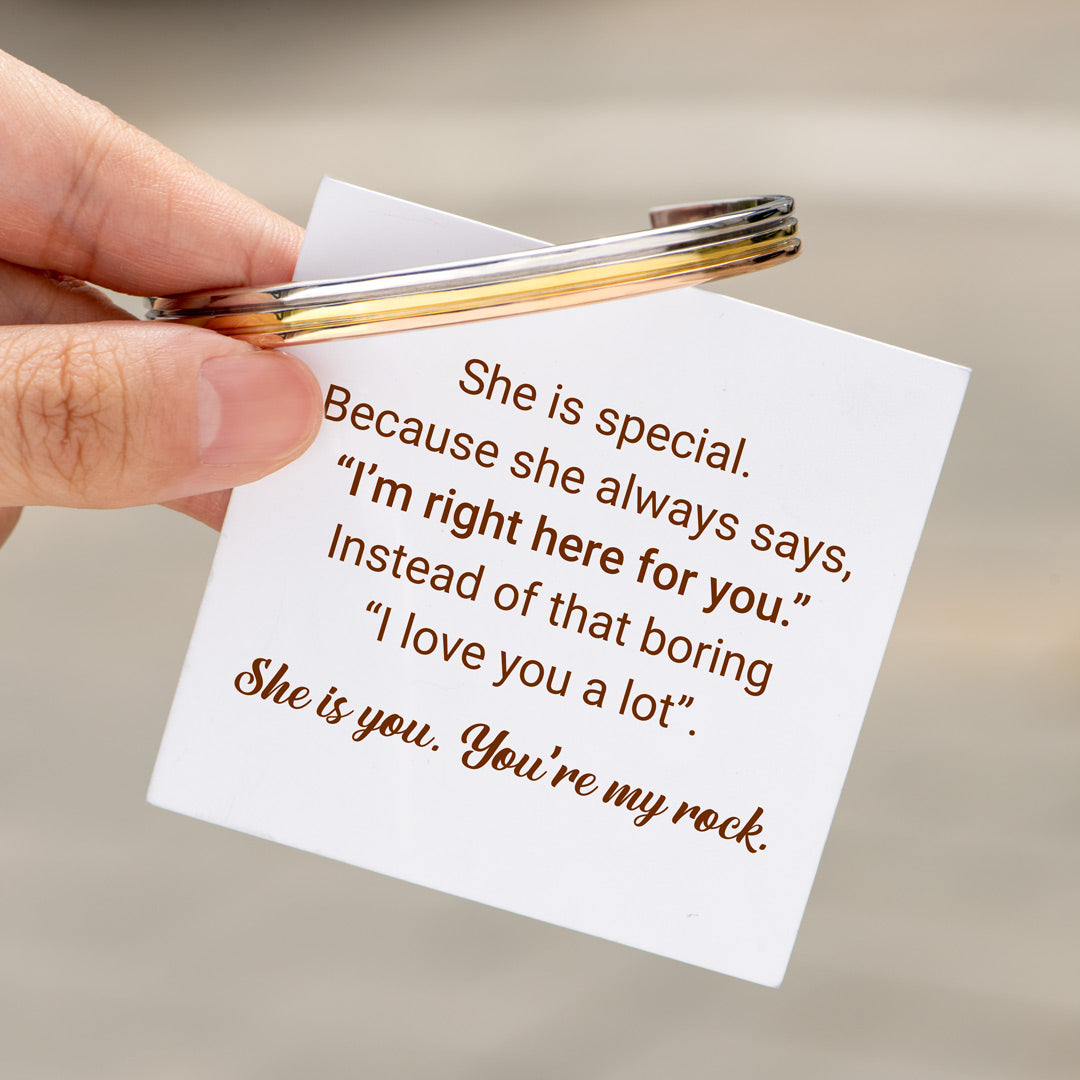 She is special.
Because she always says,
“I’m right here for you.”
Instead of that boring
“I love you a lot”.
She is you. You're my rock.